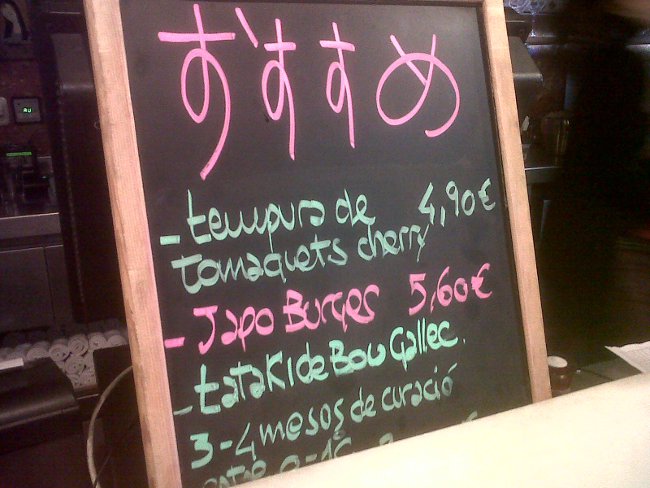 おすすめ
- tempura de 4,90€
tomaquets cherry
- Japo Burger 5,60€
- tataki de Bou Gallec.
3-4 mesos de curació